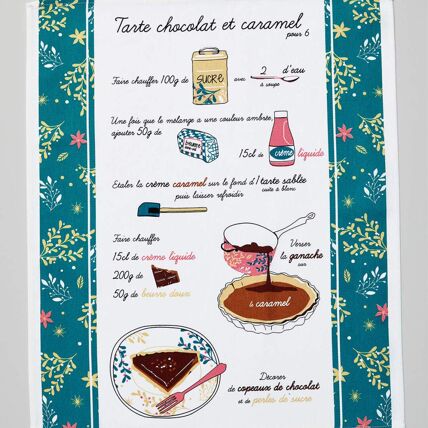 Tarte chocolat et caramel
pour 6
Faire chauffer 100g de SUCRE avec 2 à soupe d'eau
Une fois que le mélange a une couleur ambrée,
ajouter 50g de
15cl de crème liquide
Etaler la crème caramel sur le fond d'1 tarte sablée
cuite à blanc
puis laisser refroidir
Faire chauffer
15cl de crème liquide
200g de
50g de beurre doux
Verser
la ganache
sur
le caramel
Décorer
de copeaux de chocolat
et de perles de sucre